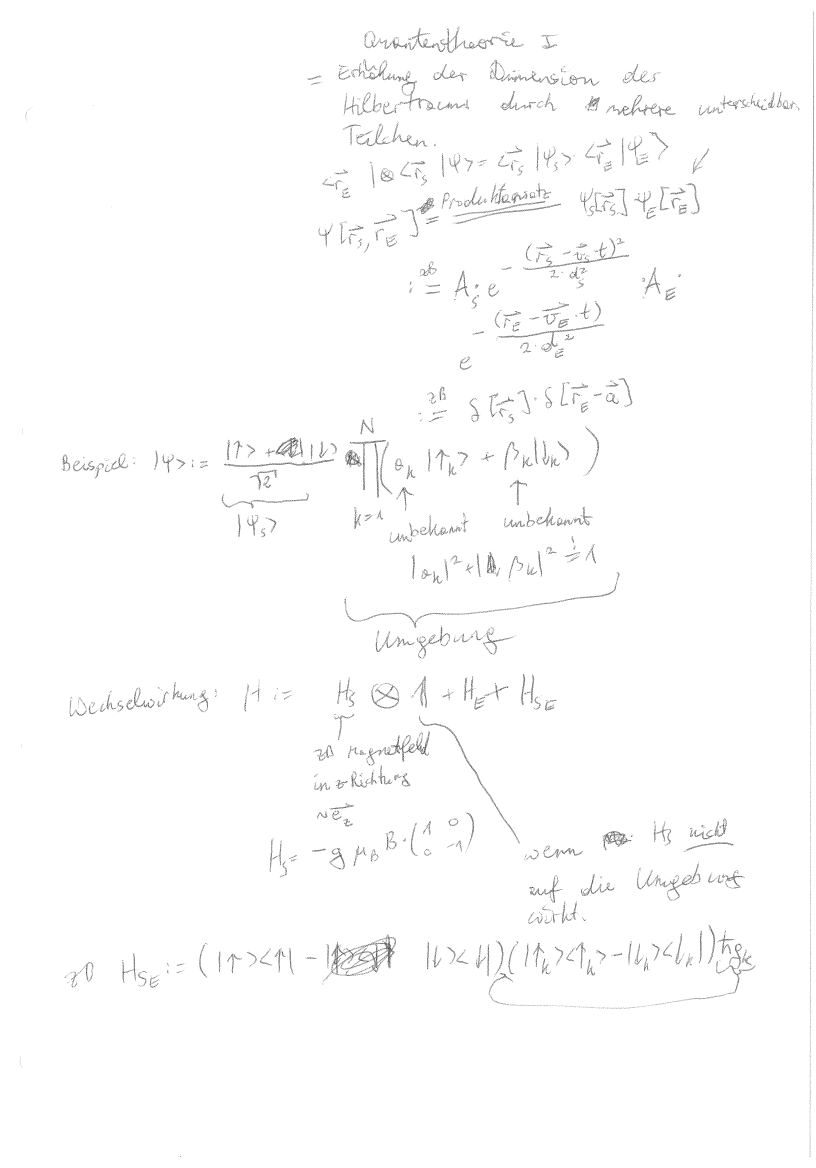 Quantentheorie I
= Erhöhung der Dimension des
Hilbertraums durch mehrere unterscheidbare
Teilchen.
<r⃗_E| ⊗ <r⃗_S |ψ> = <r⃗_S |ψ_S> <r⃗_E |ψ_E>
ψ[r⃗_S, r⃗_E] = Produktansatz ψ_S[r⃗_S] · ψ_E[r⃗_E]
zB := A_S · e^{-(r⃗_S - v⃗_S t)² / (2·d_S²)} · A_E ·
e^{-(r⃗_E - v⃗_E · t) / (2·d_E²)}
zB := δ[r⃗_S] · δ[r⃗_E - a⃗]
Beispiel: |ψ> := (|↑> + |↓>) / √2 ∏_{k=1}^{N} (α_k |↑_k> + β_k |↓_k>)
|ψ_S> unbekannt unbekannt
|α_k|² + |β_k|² =! 1
Umgebung
Wechselwirkung: H := H_S ⊗ 𝟙 + H_E + H_SE
zB Magnetfeld
in z-Richtung
~ e⃗_z
H_S = -g μ_B B · (1 0 / 0 -1)
wenn H_S nicht
auf die Umgebung
wirkt.
zB H_SE := (|↑><↑| - |↓><↓|)(|↑_k><↑_k> - |↓_k><↓_k|) ħg_k